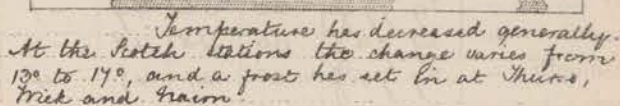 Temperature has decreased generally.
At the Scotch stations the change varies from
13° to 17°, and a frost has set in at Thurso,
Wick and Nairn.